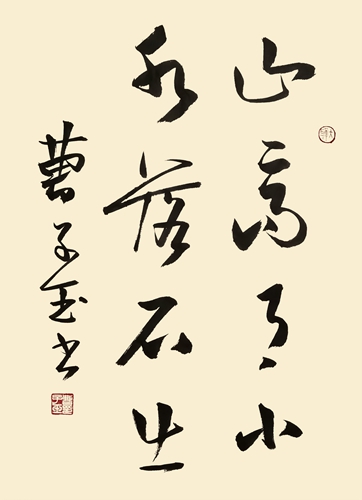 山高月小
水落石出
曹子玉书